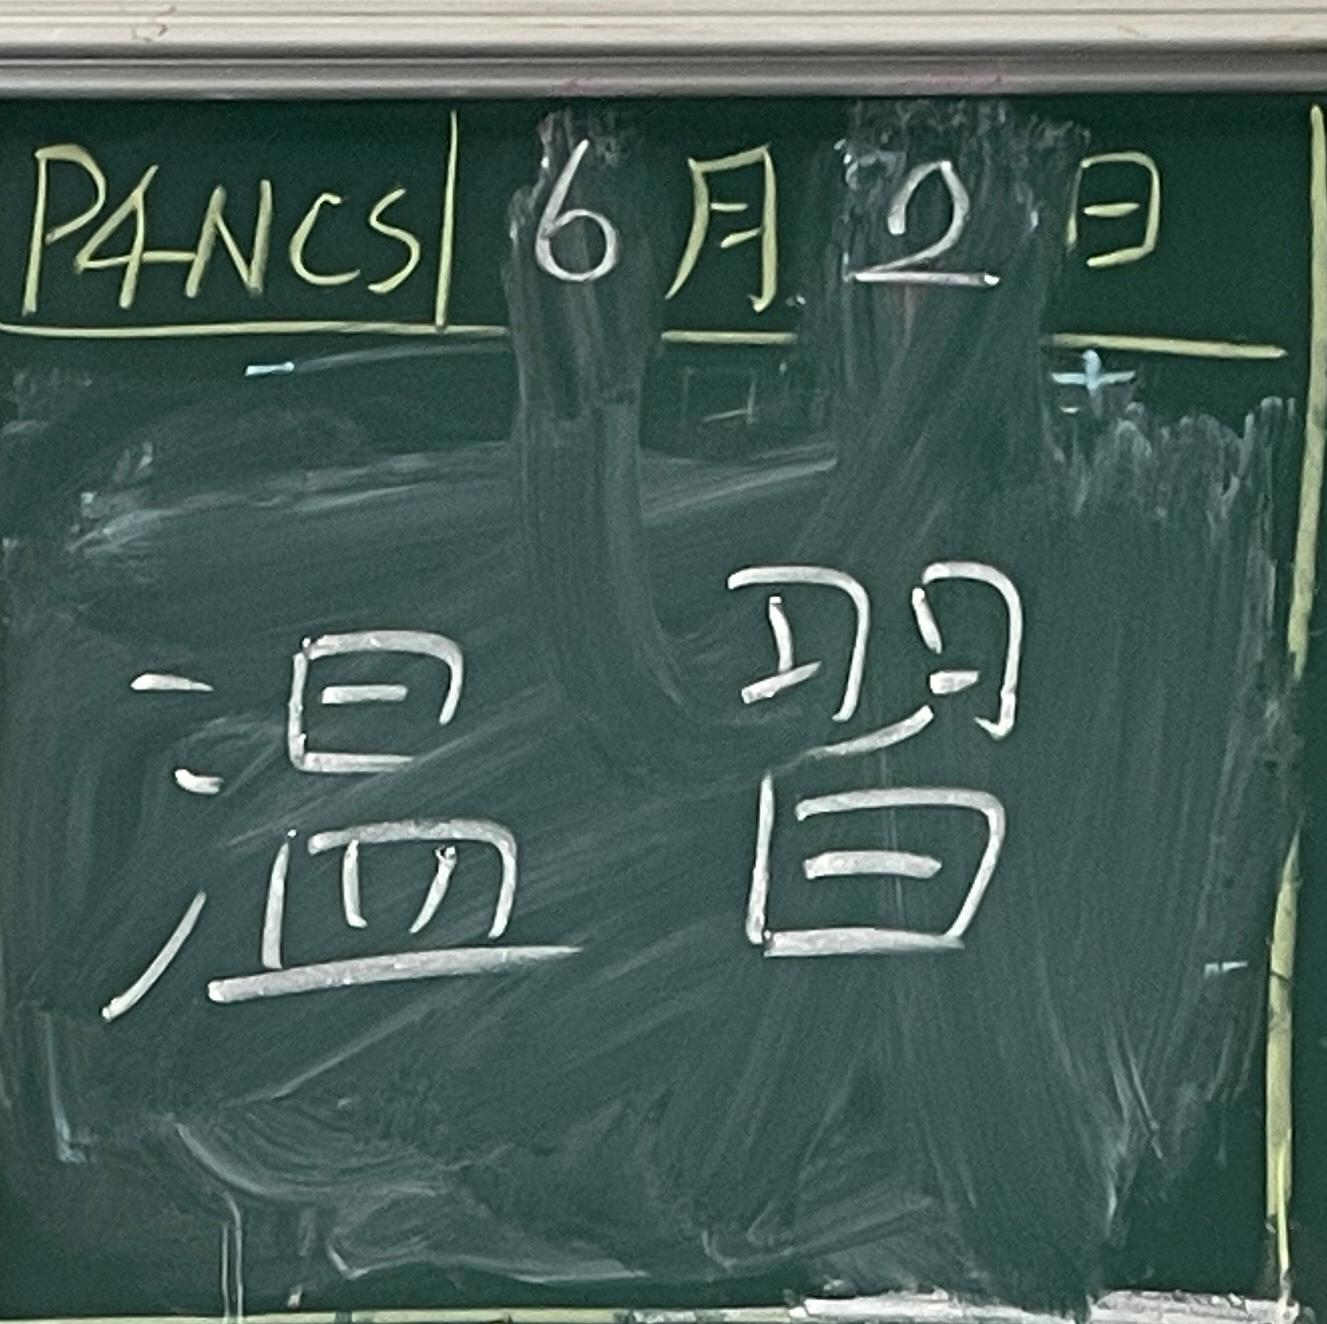 P4NCS 6月2日
温習